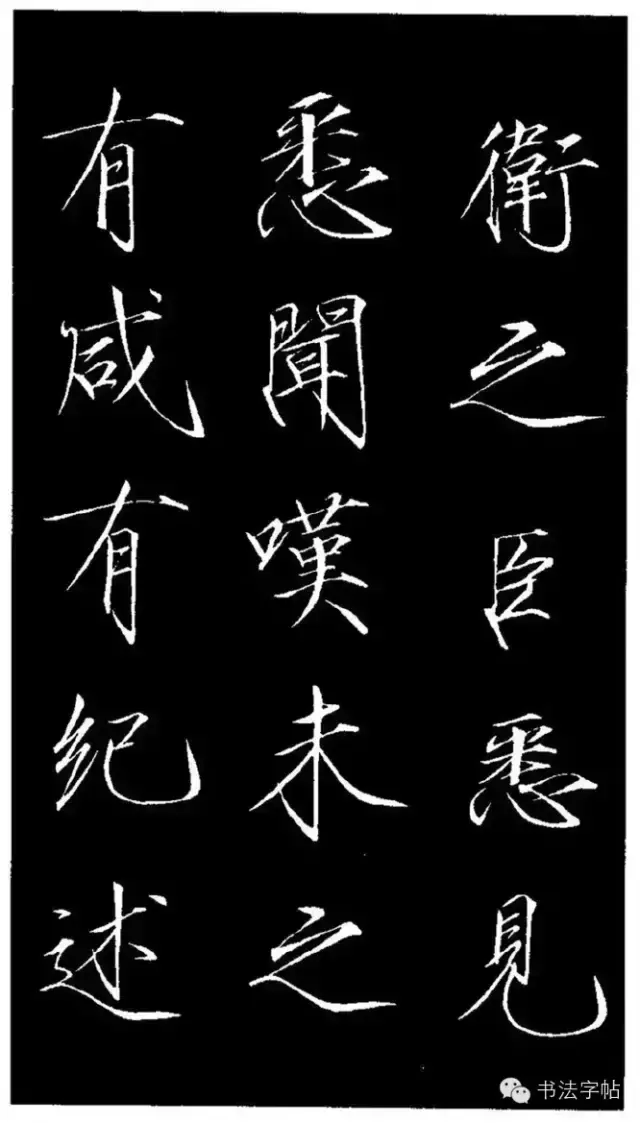 衛之臣悉見
悉聞嘆未之
有咸有纪述
书法字帖